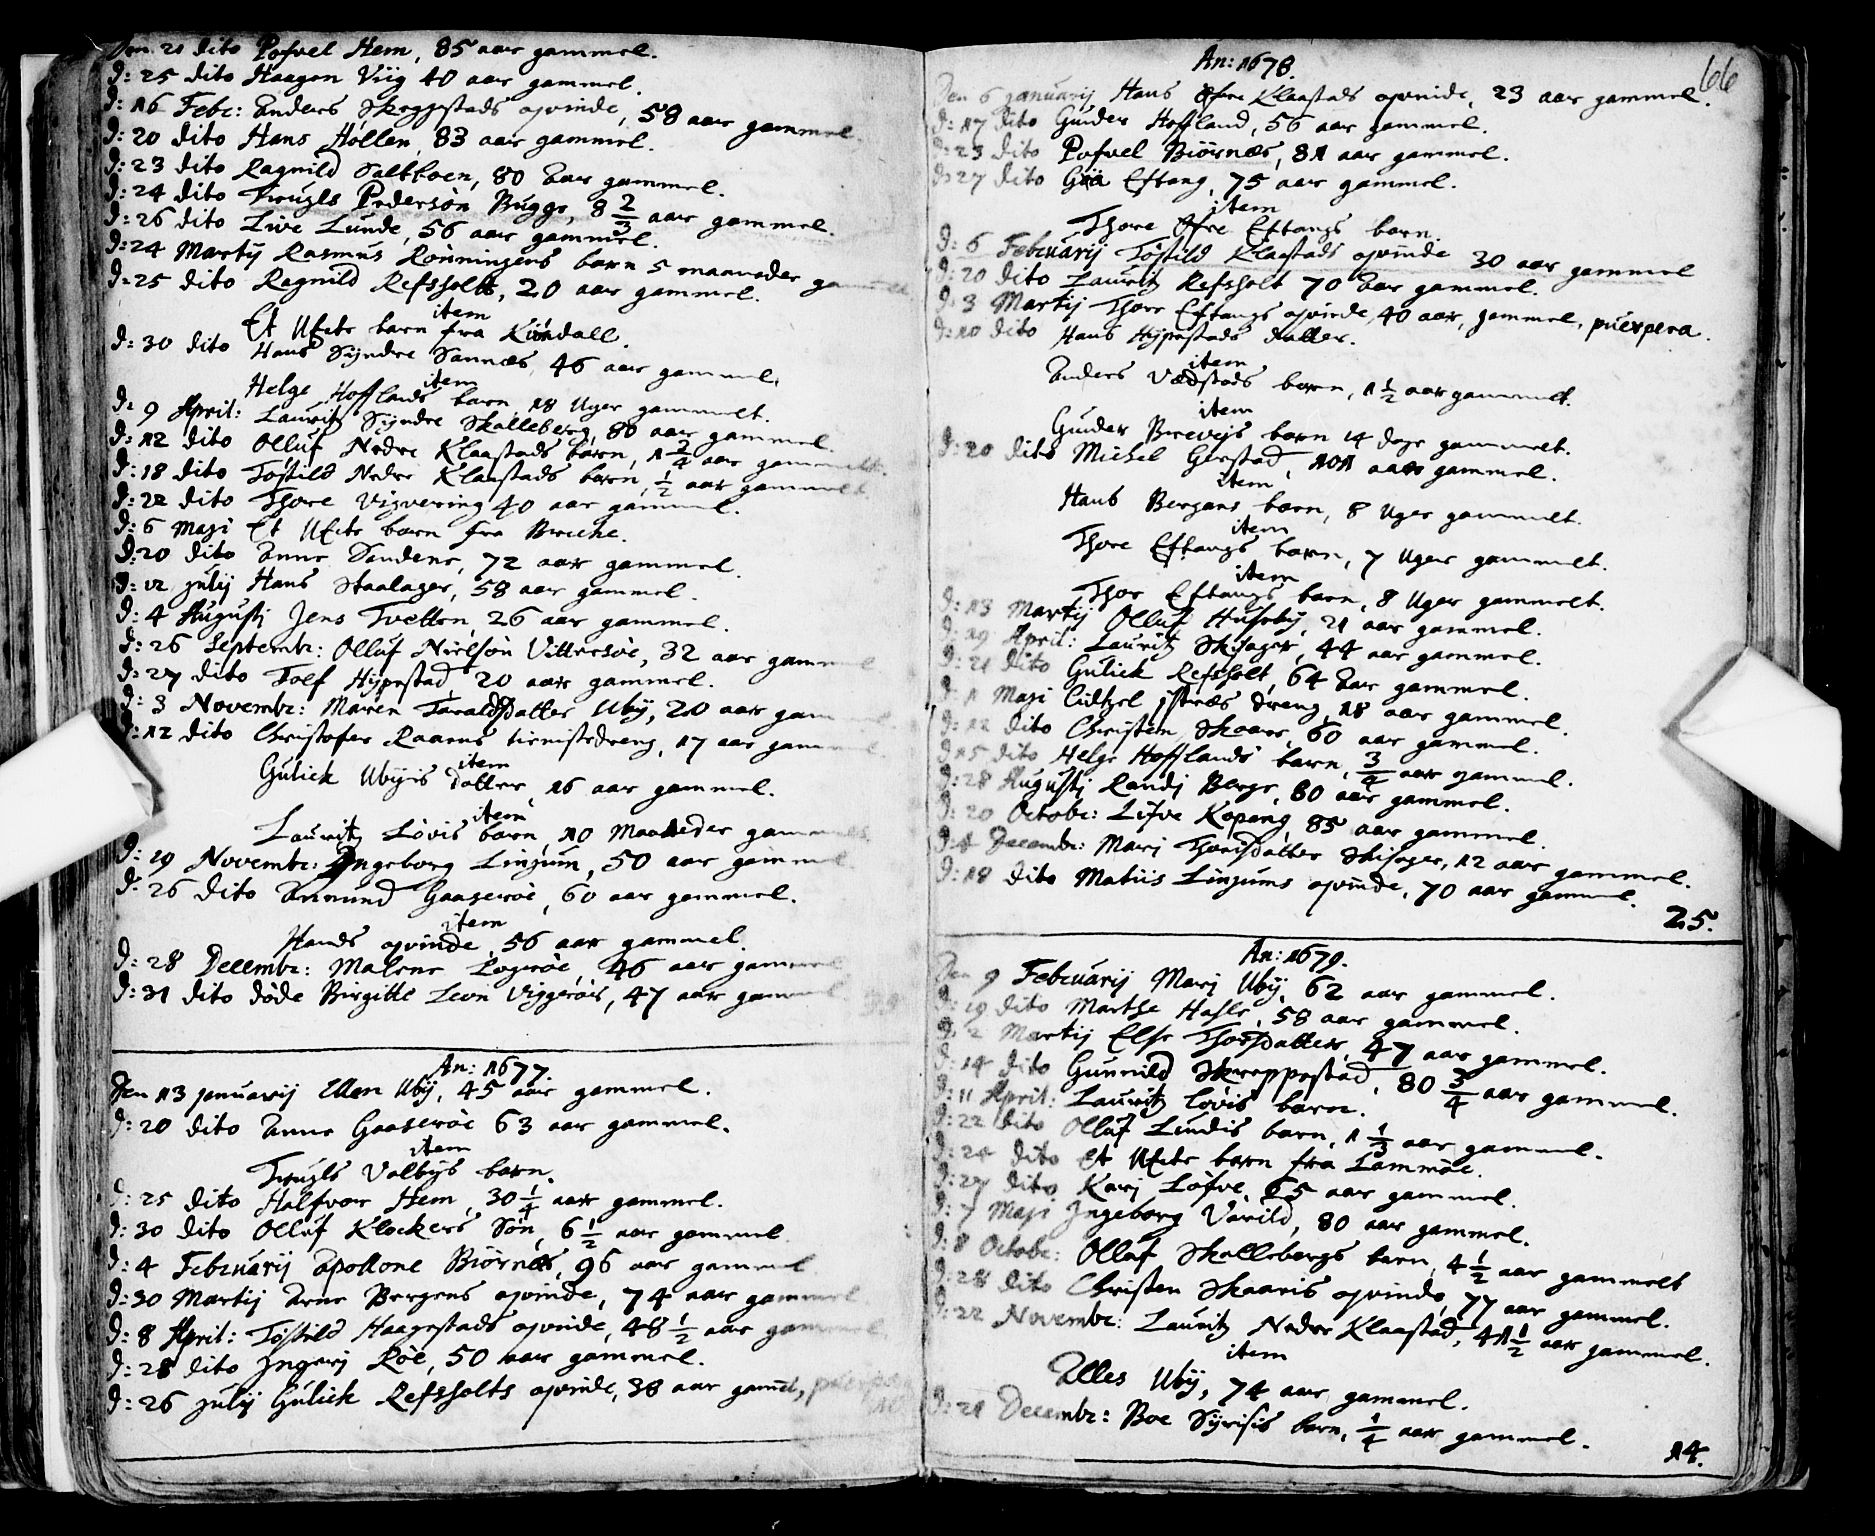 Den 21 dito Pofvel Hem, 85 aar gammel.
D: 25 dito Haagen Viig 40 aar gammel.
D: 16 Febr: Anders Skeggestads qvinde, 58 aar gammel.
D: 20 dito Hans Hollen, 83 aar gammel.
D: 23 dito Ragnild Saltkoen, 80 Aar gammel.
D: 24 dito Trugls Pedersøn Bugge, 8 2/3 aar gammel.
D: 26 dito Live Lunde, 56 aar gammel.
D: 24 Martij Rasmus Rønningens barn 5 maaneder
D: 25 dito Ragnild Refsholt, 20 aar gammel.
item
Et Uecte barn fra Kiøndall.
D: 30 dito Hans Syndre Sannæs, 46 aar gammel.
item
Helge Hofflands barn, 18 Uger gammelt.
D: 9 April: Lauritz Syndre Skalleberg, 80 aar gammel.
D: 12 dito Olluf Nedre Klaastads barn, 1 3/4 aar gammelt.
D: 18 dito Tostild Nedre Klaastads barn, 1/2 aar gammelt
D: 22 dito Thore Vizvering 40 aar gammel.
D: 6 Maji Et Uecte barn fra Breche.
D: 20 dito Anne Sandene, 72 aar gammel.
D: 12 Julij Hans Staalager, 58 aar gammel.
D: 4 Augusti Jens Tvetten, 26 aar gammel.
D: 26 Septembr: Olluf Nielsøn Vittersøe, 32 aar gammel
D: 27 dito Tolf Hypestad, 20 aar gammel.
D: 3 Novembr: Maren Taraldsdatter Uby, 20 aar
D: 12 dito Christofer Raarns drenng, 17 aar
item
Gulick Ubyis datter, 16 aar gammel.
item
Lauritz Løvis barn, 10 Maaneder
D: 19 Novembr: Ingeborg Linjum, 50 aar gammel
D: 26 dito Amund Gaaserøe, 60 aar gammel.
item
Hands qvinde, 56 aar gammel.
D: 28 Decembr: Malene Logerøe, 46 aar
D: 31 dito døde Birgitte Leon Viggerøes, 47 aar
An: 1677.
Den 13 januarij Ellen Uby, 45 aar gammel.
D: 20 dito Anne Gaaserøe 63 aar gammel.
item
Truzls Valbys barn.
D: 25 dito Halfvor Hem, 30 1/4 aar gammel.
D: 30 dito Olluf Klockers Søn, 6 1/2 aar gammel
D: 4 Februarij Apollone Biørnes, 96 aar gammel
D: 30 Martij Arne Bergens qvinde, 74 aar gammel
D: 8 April: Tostild Haagestads qvinde, 48 1/2 aar
D: 28 dito Ingerj Røe, 50 aar gammel.
D: 26 julij Gulick Refsholts qvinde, 38 aar gamel, puerpera
66
An: 1678.
Den 6 januarij Hans Øfre Klaastads qvinde, 23 aar gammel.
D: 17 dito Gunder Hoffland, 56 aar gammel.
D: 23 dito Pofvel Biørnæs, 81 aar gammel.
D: 27 dito Gøa Eftang, 75 aar gammel.
item
Thore Øfre Eftangs barn.
D: 6 Februarij Tostild Klaastads qvinde 30 aar gammel
D: 20 dito Lauritz Refsholt 70 aar gammel.
D: 3 Martij Thore Eftangs qvinde, 40 aar, gammel, puerpera.
D: 10 dito Hans Hypestads datter.
item
Anders Vædstads barn, 1 1/2 aar gammelt.
item
Gunder Brevejs barn 14 dage gammelt.
D: 20 dito Michel Gerstad, 101 aar gammel.
item
Hans Bergans barn, 8 Uger gammelt.
item
Thore Eftangs barn, 7 Uger gammelt.
item
Thor Eftangs barn, 8 Uger gammelt.
D: 13 Martij Olluf Huseby, 21 aar gammel.
D: 19 April: Lauritz Skisager, 44 aar gammel.
D: 21 dito Gulick Refsholt, 64 Aar gammel.
D: 1 Maji jstræs dreng, 18 aar gammel.
D: 12 dito Christen Skaare, 60 aar gammel.
D: 15 dito Helge Hofflands barn, 3/4 aar gammel.
D: 28 Augustj Randj Berge, 60 aar gammel.
D: 20 Octobr: Lifve Kopang, 85 aar gammel.
D: 4 Decembr: Marj Thorisdatter Skisager, 12 aar gammel.
D: 18 dito Matiis Linjums qvinde, 70 aar gammel.
25.
An: 1679.
Den 9 Februarij Marj Uby, 62 aar gammel.
D: 19 dito Marthe Hasle, 58 aar gammel.
D: 2 Martij Else Thorsdatter, 47 aar gammel.
D: 14 dito Gunnild Skreppestad, 80 3/4 aar gammel.
D: 11 April: Lauritz Løvis barn.
D: 22 dito Olluf Lundis barn, 1 1/3 aar gammel.
D: 24 dito et Uecte barn fra Lammøe.
D: 27 dito Karj Løfve, 65 aar gammel.
D: 7 Maji Ingeborg Varild, 80 aar gammel.
D: 8 Octobr: Olluf Skallebergs barn, 4 1/2 aar gammelt
D: 28 dito Christen Skaaris qvinde, 77 aar gammel.
D: 22 Novembr: Lauritz Nedre Klaastad, 41 1/2 aar gammel.
item
Alles Uby, 74 aar gammel.
D: 21 Decembr: Boe Syrisis barn, 1/4 aar gammel.
14.